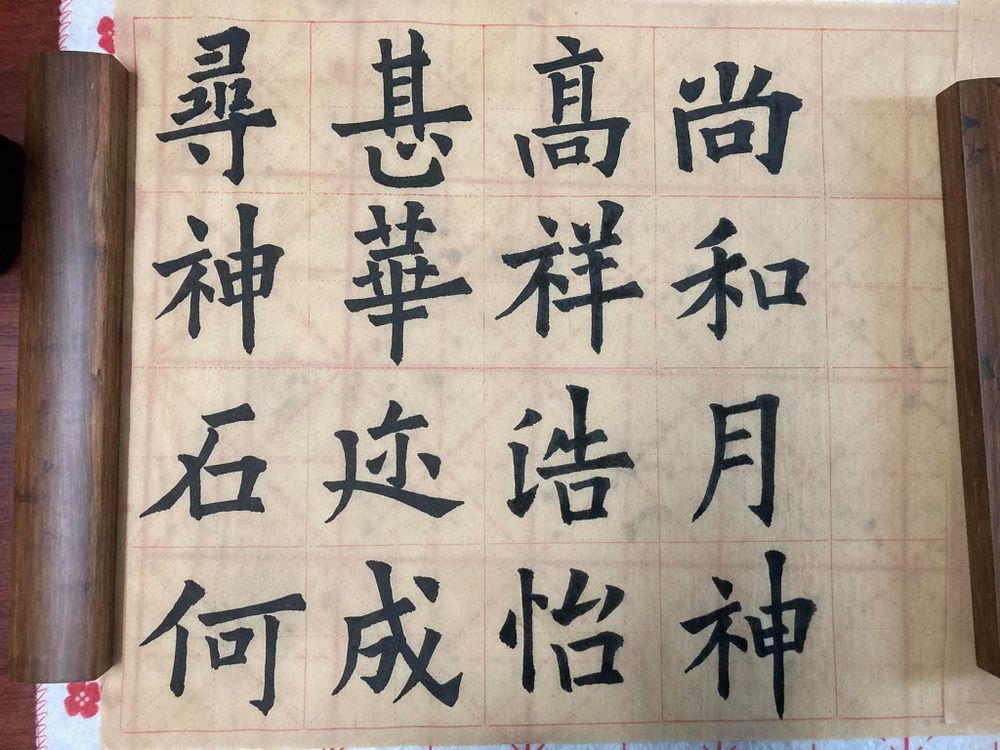 尚和月神
髙祥浩怡
甚華迹成
尋神石何